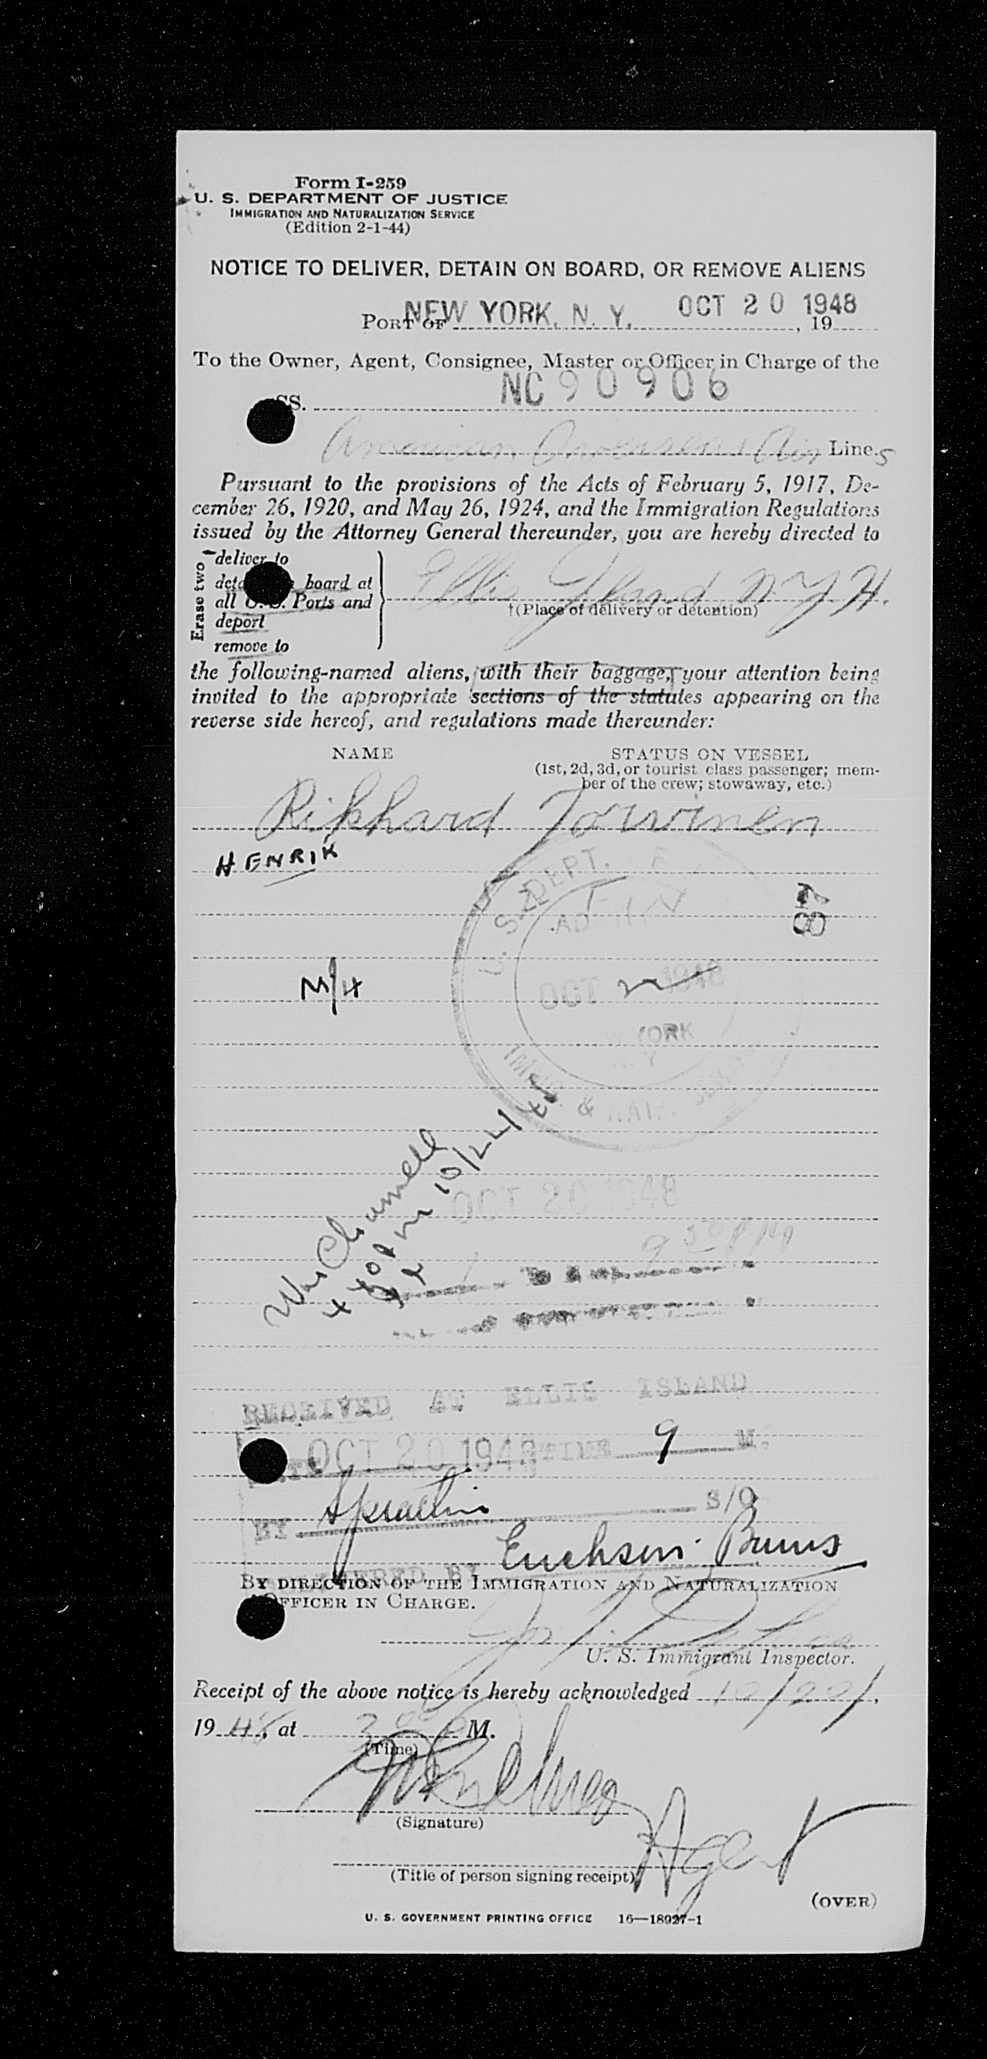 Form I-259
U. S. DEPARTMENT OF JUSTICE
IMMIGRATION AND NATURALIZATION SERVICE
(Edition 2-1-44)
NOTICE TO DELIVER, DETAIN ON BOARD, OR REMOVE ALIENS
PORT OF NEW YORK, N. Y. OCT 20 1948, 19
To the Owner, Agent, Consignee, Master or Officer in Charge of the
SS. NC 90906
American Overseas Air Lines
Pursuant to the provisions of the Acts of February 5, 1917, De-
cember 26, 1920, and May 26, 1924, and the Immigration Regulations
issued by the Attorney General thereunder, you are hereby directed to
Erase two
deliver to
board at
all U. S. Ports and
deport
remove to
Ellis Island N.Y.H.
†(Place of delivery or detention)
the following-named aliens, with their baggage, your attention being
invited to the appropriate sections of the statutes appearing on the
reverse side hereof, and regulations made thereunder:
NAME STATUS ON VESSEL
(1st, 2d, 3d, or tourist class passenger; mem-
ber of the crew; stowaway, etc.)
Rikhard Torvinen
HENRIK
U. S. DEPT.
87
M/H
OCT 1948
YORK
10/22/48
OCT 20 1948
9 30 PM
RECEIVED AT ELLIS ISLAND
OCT 20 1948 TIME 9 M.
BY S/O
BY DIRECTION OF THE IMMIGRATION AND NATURALIZATION
OFFICER IN CHARGE.
U. S. Immigrant Inspector.
Receipt of the above notice is hereby acknowledged 10/20/,
1948, at M.
(Time)
(Signature)
Agent
(Title of person signing receipt)
(OVER)
U. S. GOVERNMENT PRINTING OFFICE 16—18927-1